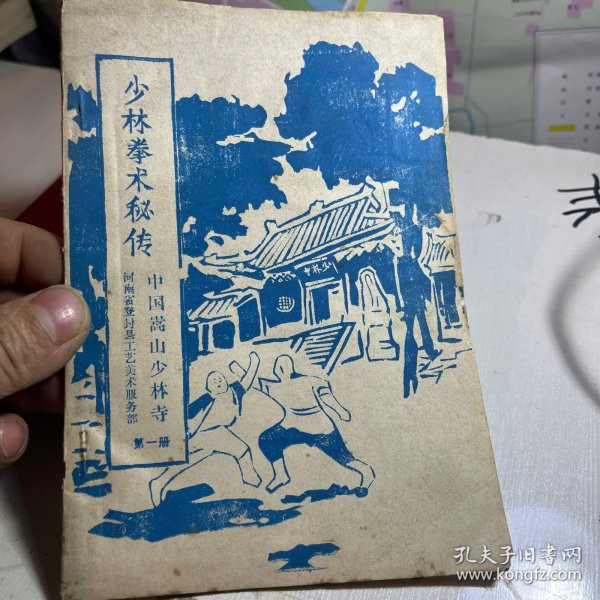 少林拳术秘传
中国嵩山少林寺
河南省登封县工艺美术服务部
第一册
少林寺
孔夫子旧书网
www.kongfz.com